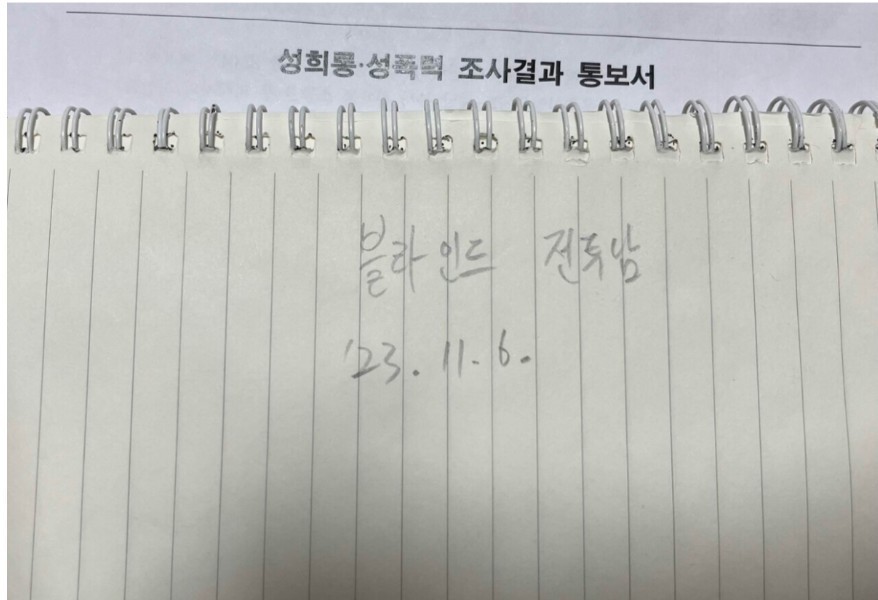 성희롱·성폭력 조사결과 통보서
블라인드 전투남
'23. 11. 6.